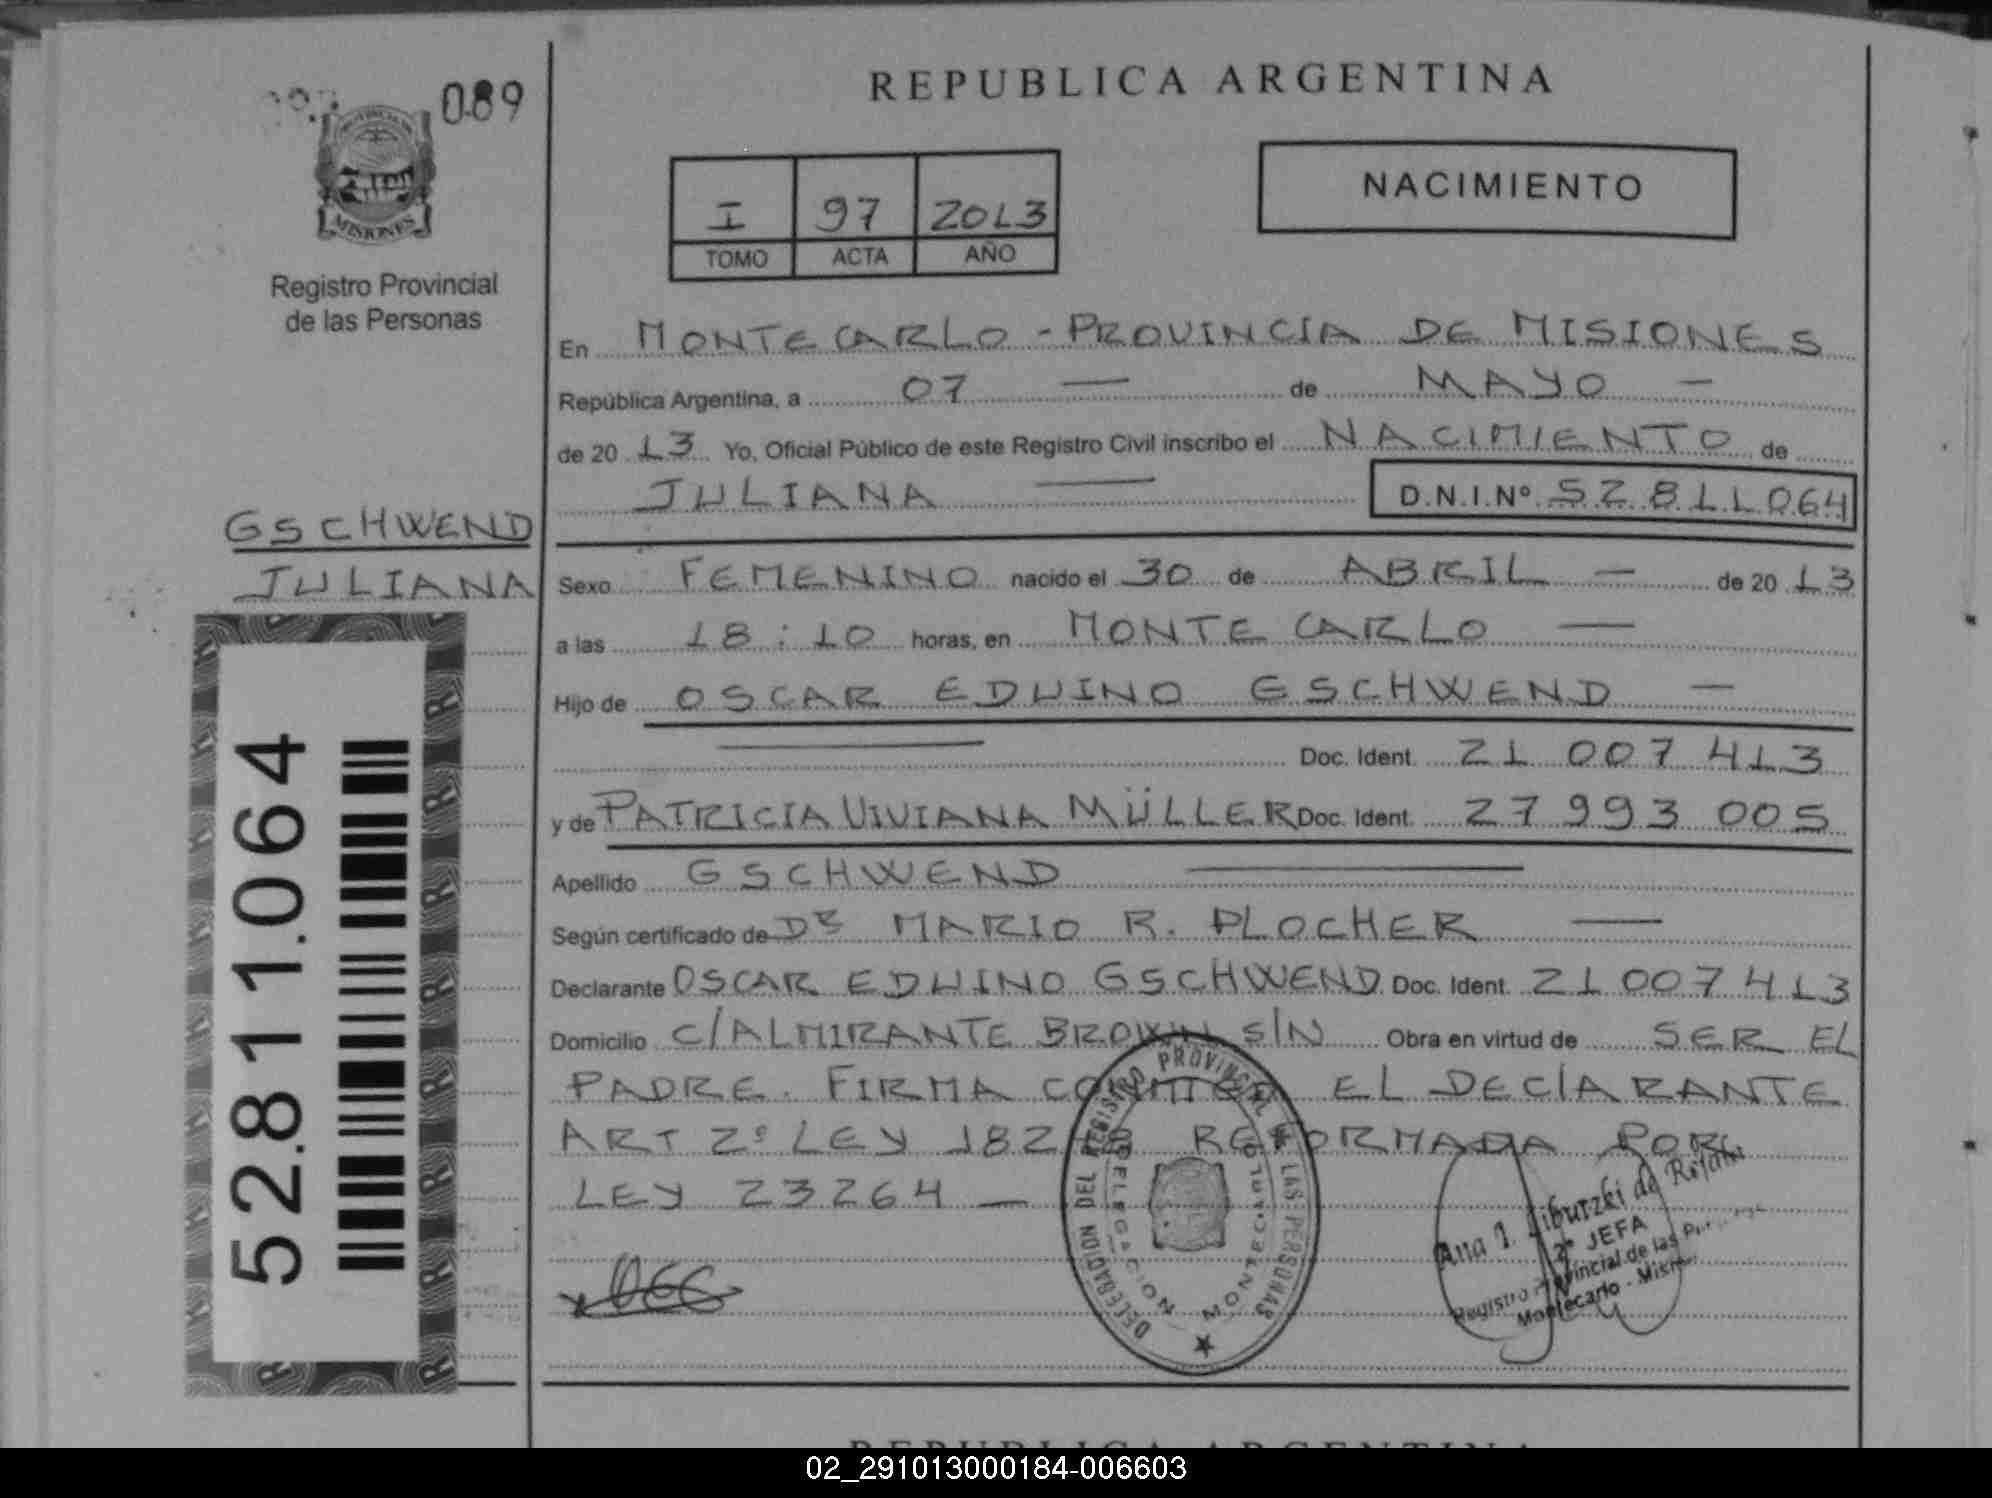 089
MISIONES
Registro Provincial
de las Personas
GSCHWEND
JULIANA
52.811.064
REPUBLICA ARGENTINA
I 97 2013
TOMO ACTA AÑO
NACIMIENTO
En MONTECARLO - PROVINCIA DE MISIONES
República Argentina, a 07 — de MAYO —
de 20 13 Yo, Oficial Público de este Registro Civil inscribo el NACIMIENTO de
JULIANA — D.N.I.Nº 52811064
Sexo FEMENINO nacido el 30 de ABRIL — de 20 13
a las 18:10 horas, en MONTE CARLO —
Hijo de OSCAR EDUINO GSCHWEND —
— Doc. Ident. 21 007 413
y de PATRICIA VIVIANA MÜLLER Doc. Ident. 27 993 005
Apellido GSCHWEND —
Según certificado de Dr MARIO R. PLOCHER —
Declarante OSCAR EDUINO GSCHWEND Doc. Ident. 21 007 413
Domicilio C/ALMIRANTE BROWN S/N Obra en virtud de SER EL
PADRE. FIRMA CONMIGO EL DECLARANTE
ART 2º LEY REFORMADA POR
LEY 23264 —
DELEGACION DEL REGISTRO PROVINCIAL DE LAS PERSONAS
DELEGACION MONTECARLO
Ana
2º JEFA
Registro Provincial de las
Montecarlo - Misiones
REPUBLICA ARGENTINA
02_291013000184-006603